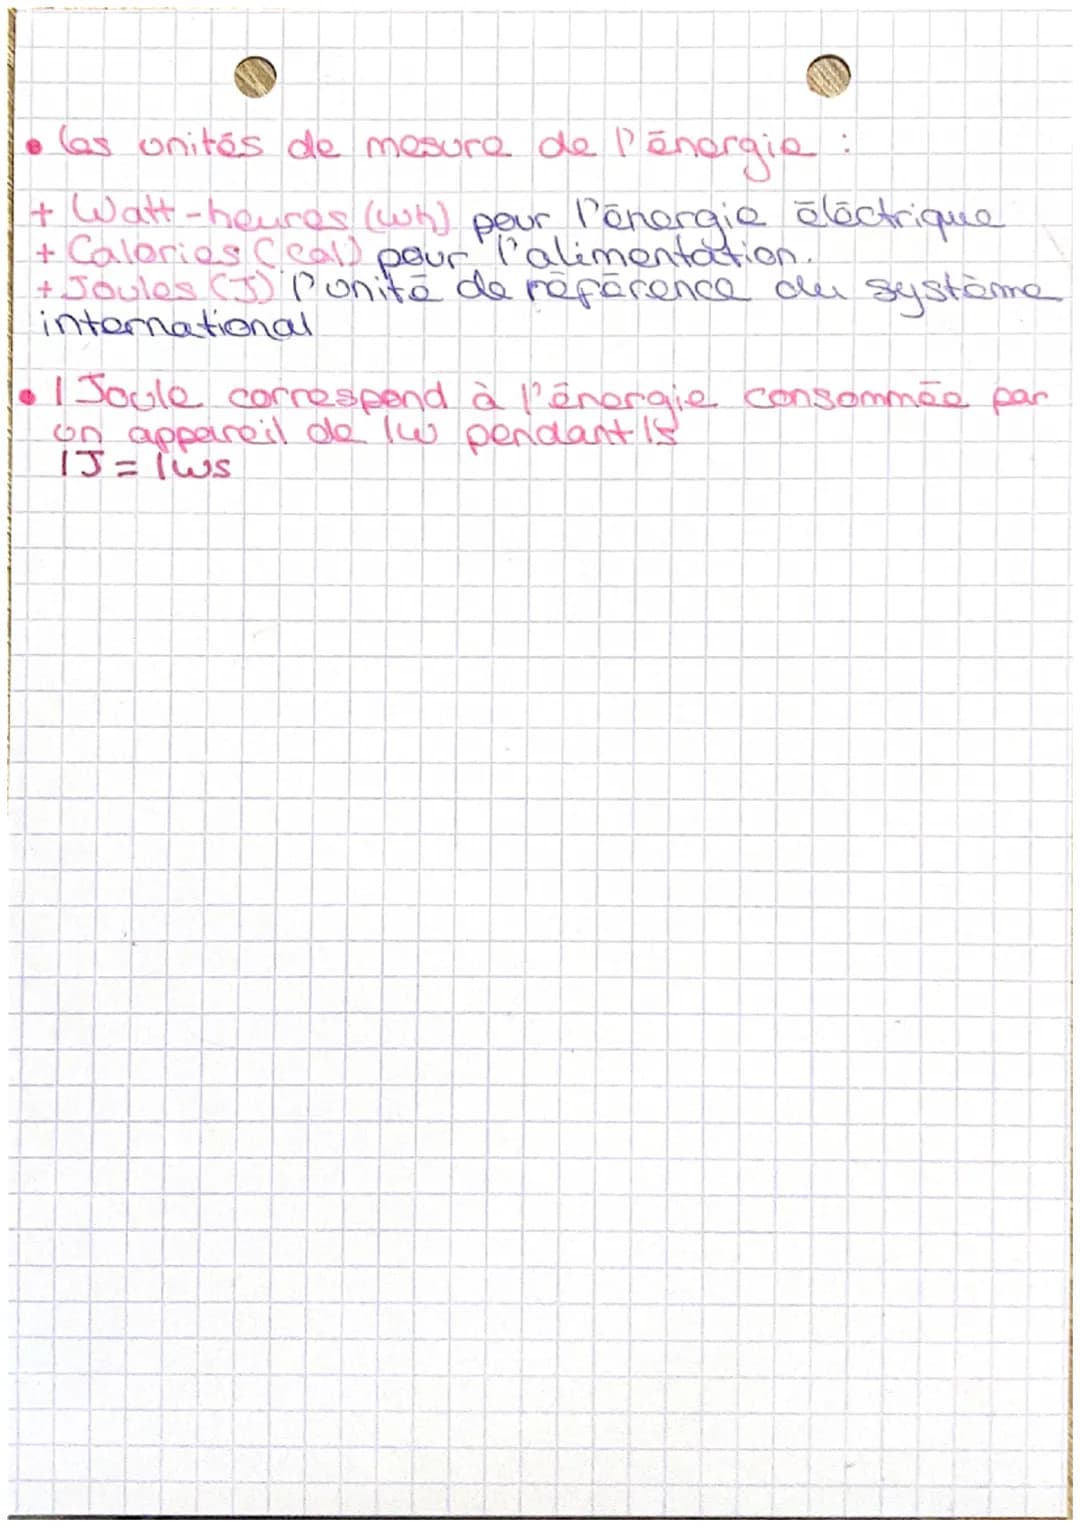 • les unités de mesure de l'énergie :
+ Watt-heures (wh) pour l'énergie éléctrique
+ Calories (cal) pour l'alimentation.
+ Joules (J) l'unité de référence du système
international
• 1 Joule correspond à l'énergie consommée par
un appareil de 1w pendant 1s
1J = 1ws